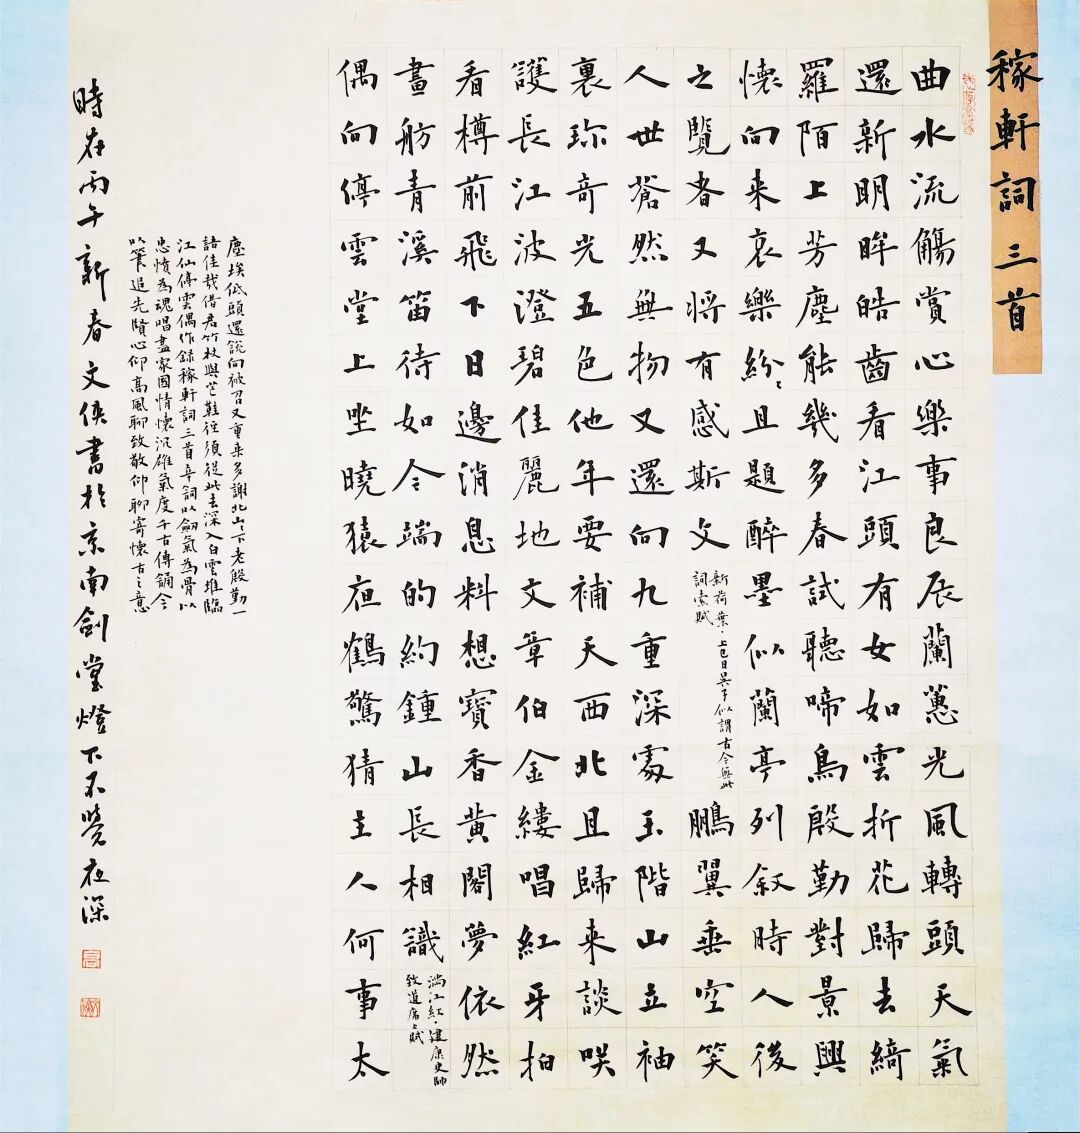 稼軒詞 三首
曲水流觴賞心樂事良辰蘭蕙光風轉頭天氣
還新明眸皓齒看江頭有女如雲折花歸去綺
羅陌上芳塵能幾多春試聽啼鳥殷勤對景興
懷向来哀樂紛〻且題醉墨似蘭亭列敘時人後
之覽者又將有感斯文
新荷葉·上巳日吳子似謂古今無此
詞索賦
鵬翼垂空笑
人世蒼然無物又還向九重深處玉階山立袖
裏珍奇光五色他年要補天西北且歸来談咲
護長江波澄碧佳麗地文章伯金縷唱紅牙拍
看樽前飛下日邊消息料想寶香黃閣夢依然
畫舫青溪笛待如今端的約鍾山長相識
滿江紅·建康史帥
致道席上賦
偶向停雲堂上坐曉猿夜鶴驚猜主人何事太
塵埃低頭還說向被召又重来多謝北山〻下老殷勤一
語佳哉借君竹杖與芒鞋徑須從此去深入白雲堆臨
江仙停雲偶作錄稼軒詞三首辛詞以劍氣為骨以
忠憤為魂唱盡家國情懷沉雄氣度千古傳誦今
以筆追先賢心仰高風聊致敬仰聊寄懷古之意
時在丙午新春文俠書於京南劍堂燈下不覺夜深